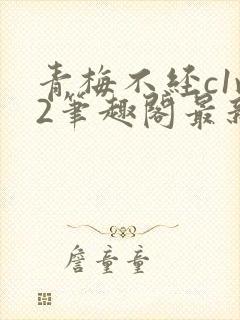 青梅不经c1v
2笔趣阁最新
詹童童